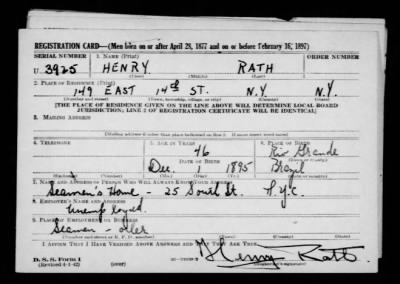 REGISTRATION CARD—(Men born on or after April 28, 1877 and on or before February 16, 1897)
SERIAL NUMBER 1. NAME (Print) ORDER NUMBER
U 3925 HENRY RATH
(First) (Middle) (Last)
2. PLACE OF RESIDENCE (Print)
149 EAST 14th ST. N.Y. N.Y.
(Number and street) (Town, township, village, or city) (County) (State)
[THE PLACE OF RESIDENCE GIVEN ON THE LINE ABOVE WILL DETERMINE LOCAL BOARD
JURISDICTION; LINE 2 OF REGISTRATION CERTIFICATE WILL BE IDENTICAL]
3. MAILING ADDRESS
[Mailing address if other than place indicated on line 2. If same insert word same]
4. TELEPHONE 5. AGE IN YEARS 6. PLACE OF BIRTH
46 Rio Grande
DATE OF BIRTH (Town or county)
Dec. 1 1895 Brazil
(Exchange) (Number) (Mo.) (Day) (Yr.) (State or country)
7. NAME AND ADDRESS OF PERSON WHO WILL ALWAYS KNOW YOUR ADDRESS
Seamen's Home - 25 South St. N.Y.C.
8. EMPLOYER'S NAME AND ADDRESS
Unemployed
9. PLACE OF EMPLOYMENT OR BUSINESS
Seaman - oiler
(Number and street or R. F. D. number) (Town) (County) (State)
I AFFIRM THAT I HAVE VERIFIED ABOVE ANSWERS AND THAT THEY ARE TRUE.
D. S. S. Form 1 Henry Rath
(Revised 4-1-42) (over) (Registrant's signature)